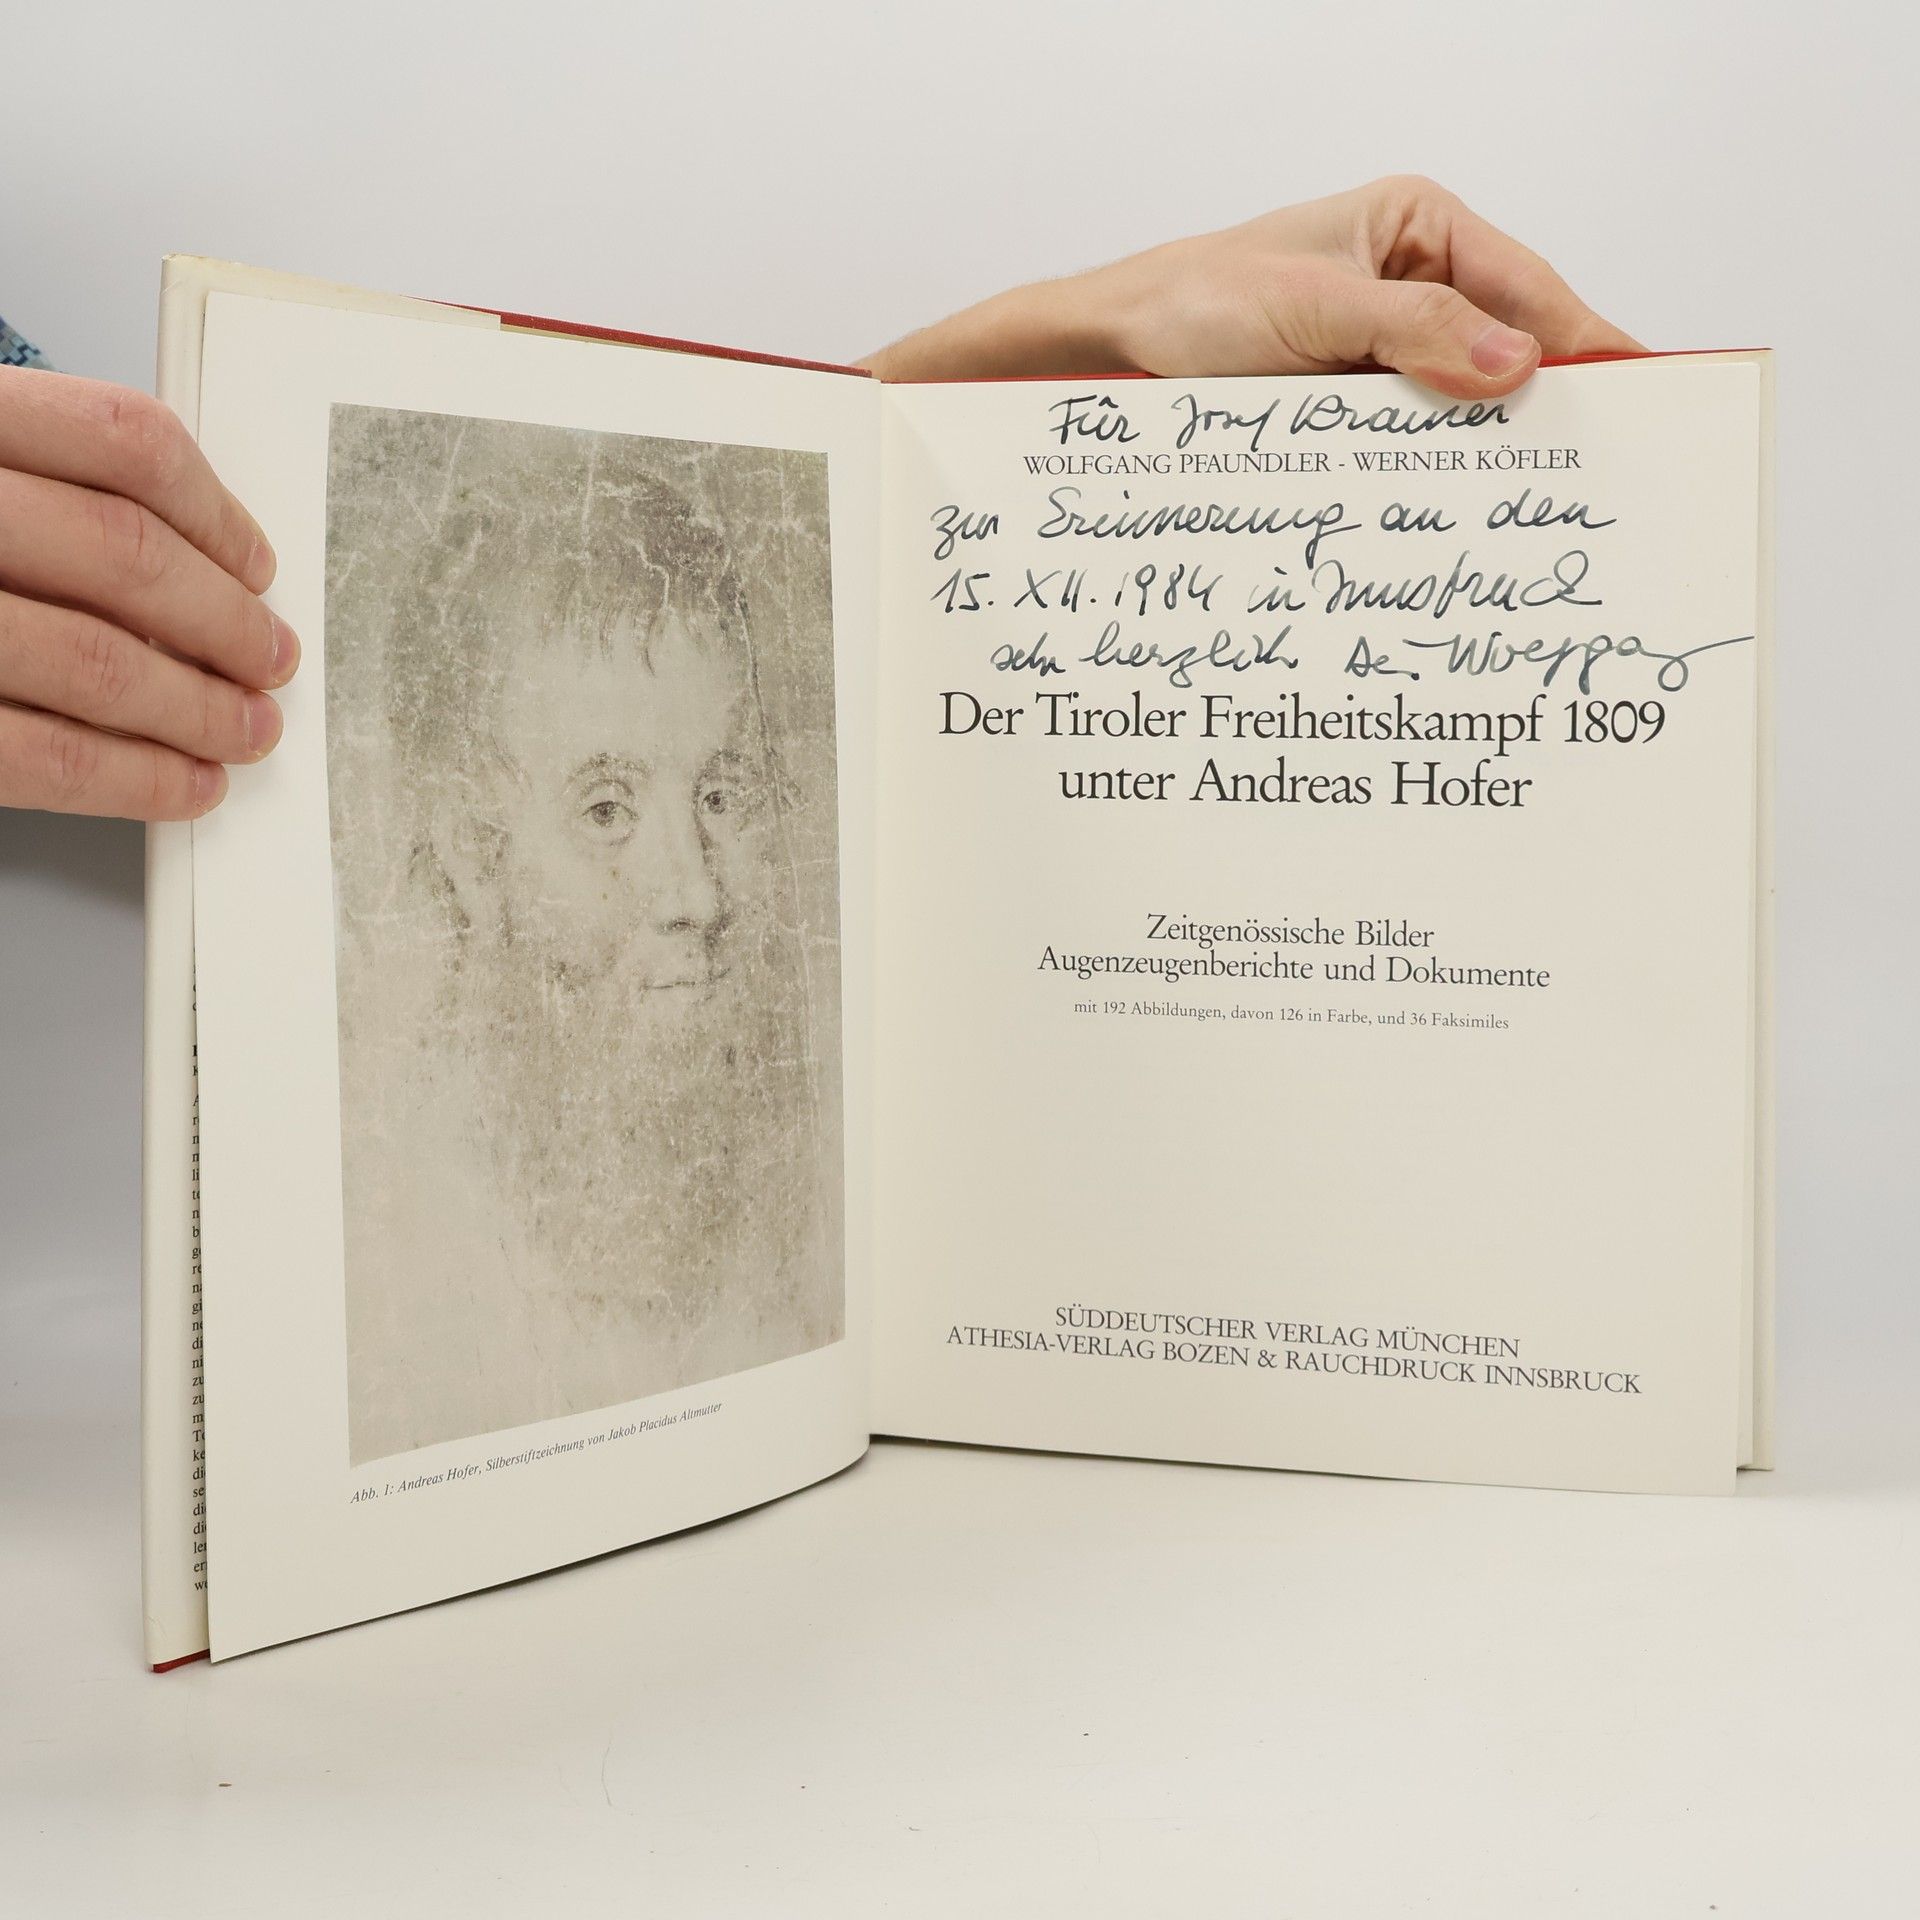 Abb. 1: Andreas Hofer, Silberstiftzeichnung von Jakob Placidus Altmutter
Für Josef Kramer
WOLFGANG PFAUNDLER - WERNER KÖFLER
zur Erinnerung an den
15. XII. 1984 in Innsbruck
sehr herzlich Dein Wolfgang
Der Tiroler Freiheitskampf 1809
unter Andreas Hofer
Zeitgenössische Bilder
Augenzeugenberichte und Dokumente
mit 192 Abbildungen, davon 126 in Farbe, und 36 Faksimiles
SÜDDEUTSCHER VERLAG MÜNCHEN
ATHESIA-VERLAG BOZEN & RAUCHDRUCK INNSBRUCK